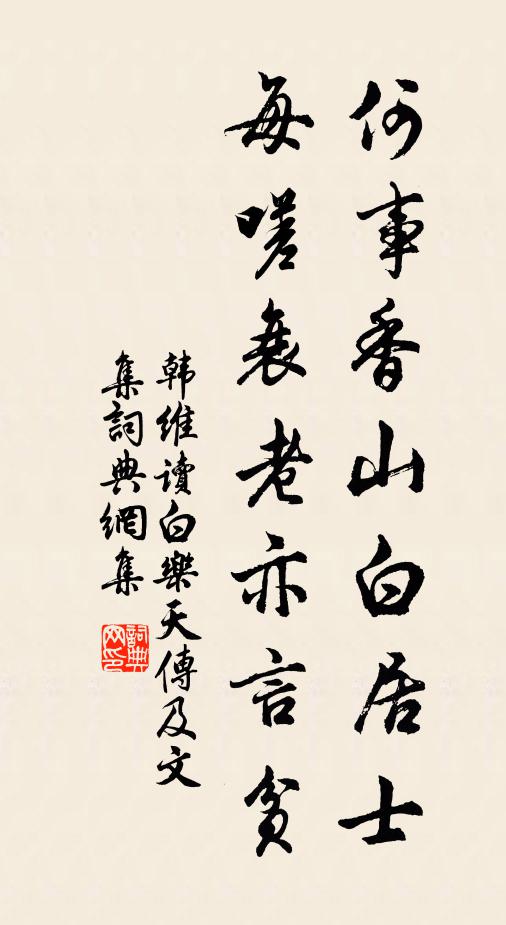 何事香山白居士
每嗟衰老亦言貧
韩維读白樂天傳及文
集詞典網集
詞典網印